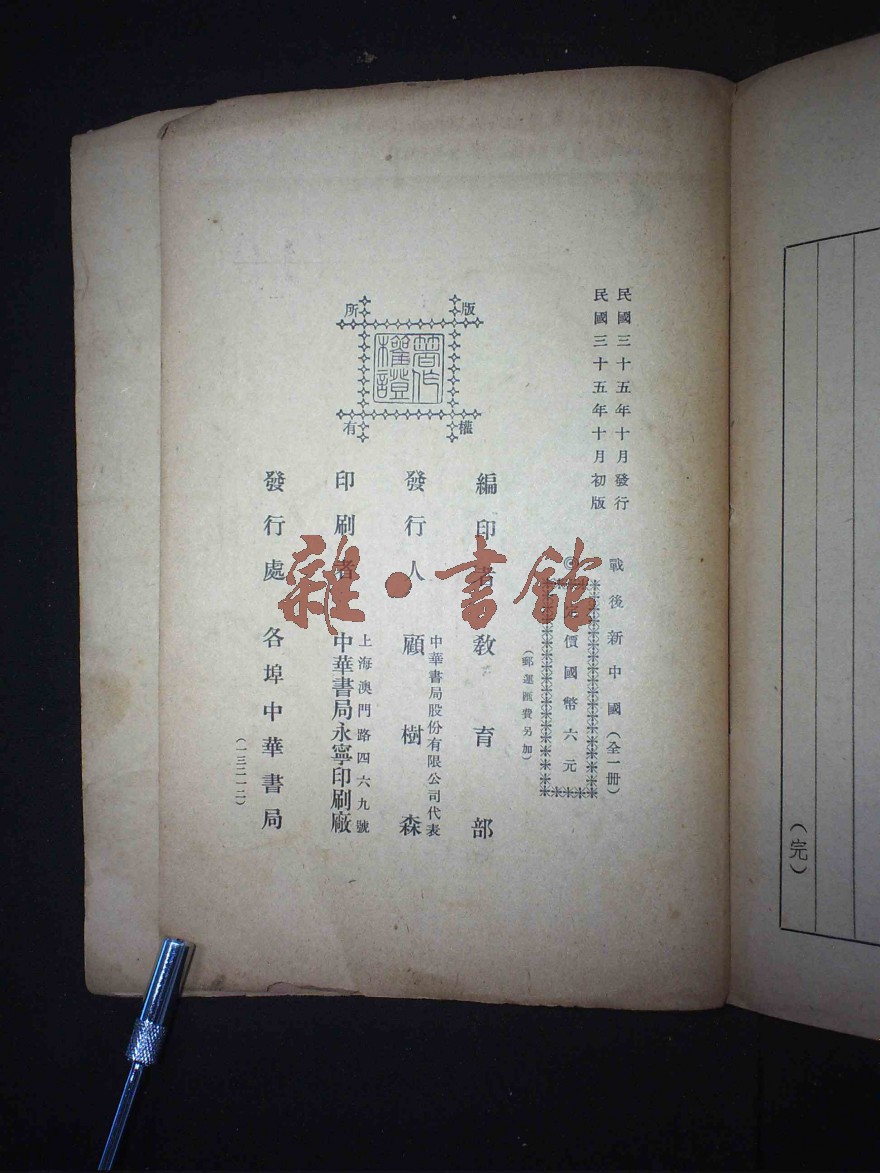 民國三十五年十月發行
民國三十五年十月初版
戰後新中國（全一冊）
◎定價國幣六元
（郵運匯費另加）
編印者 教育部
發行人 中華書局股份有限公司代表
顧樹森
印刷者 上海澳門路四六九號
中華書局永寧印刷廠
發行處 各埠中華書局
（一三二一二）
版權所有
著作權證
雜·書館
（完）